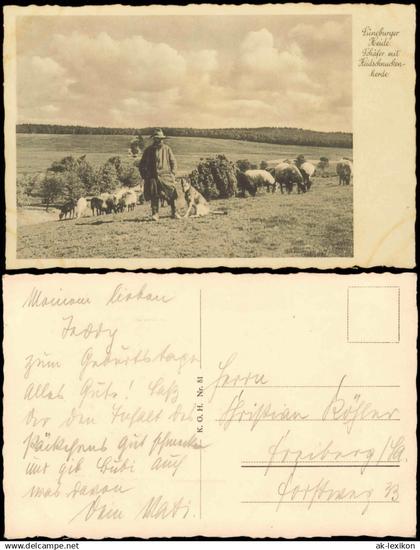 Lüneburger
Heide.
Schäfer mit
Heidschnucken-
herde
Meinem lieben
Teddy
zum Geburtstage
Alles Gute! Laß
Dir den Inhalt des
Päckchens gut schmecken
und gib Bubi auch
was davon
Dein Vati.
K. G. H. Nr. 81
Herrn
Christian Köhler
Freiberg /Sa.
Forstweg
www.delcampe.net
website
ak-lexikon
ak-lexikon.com